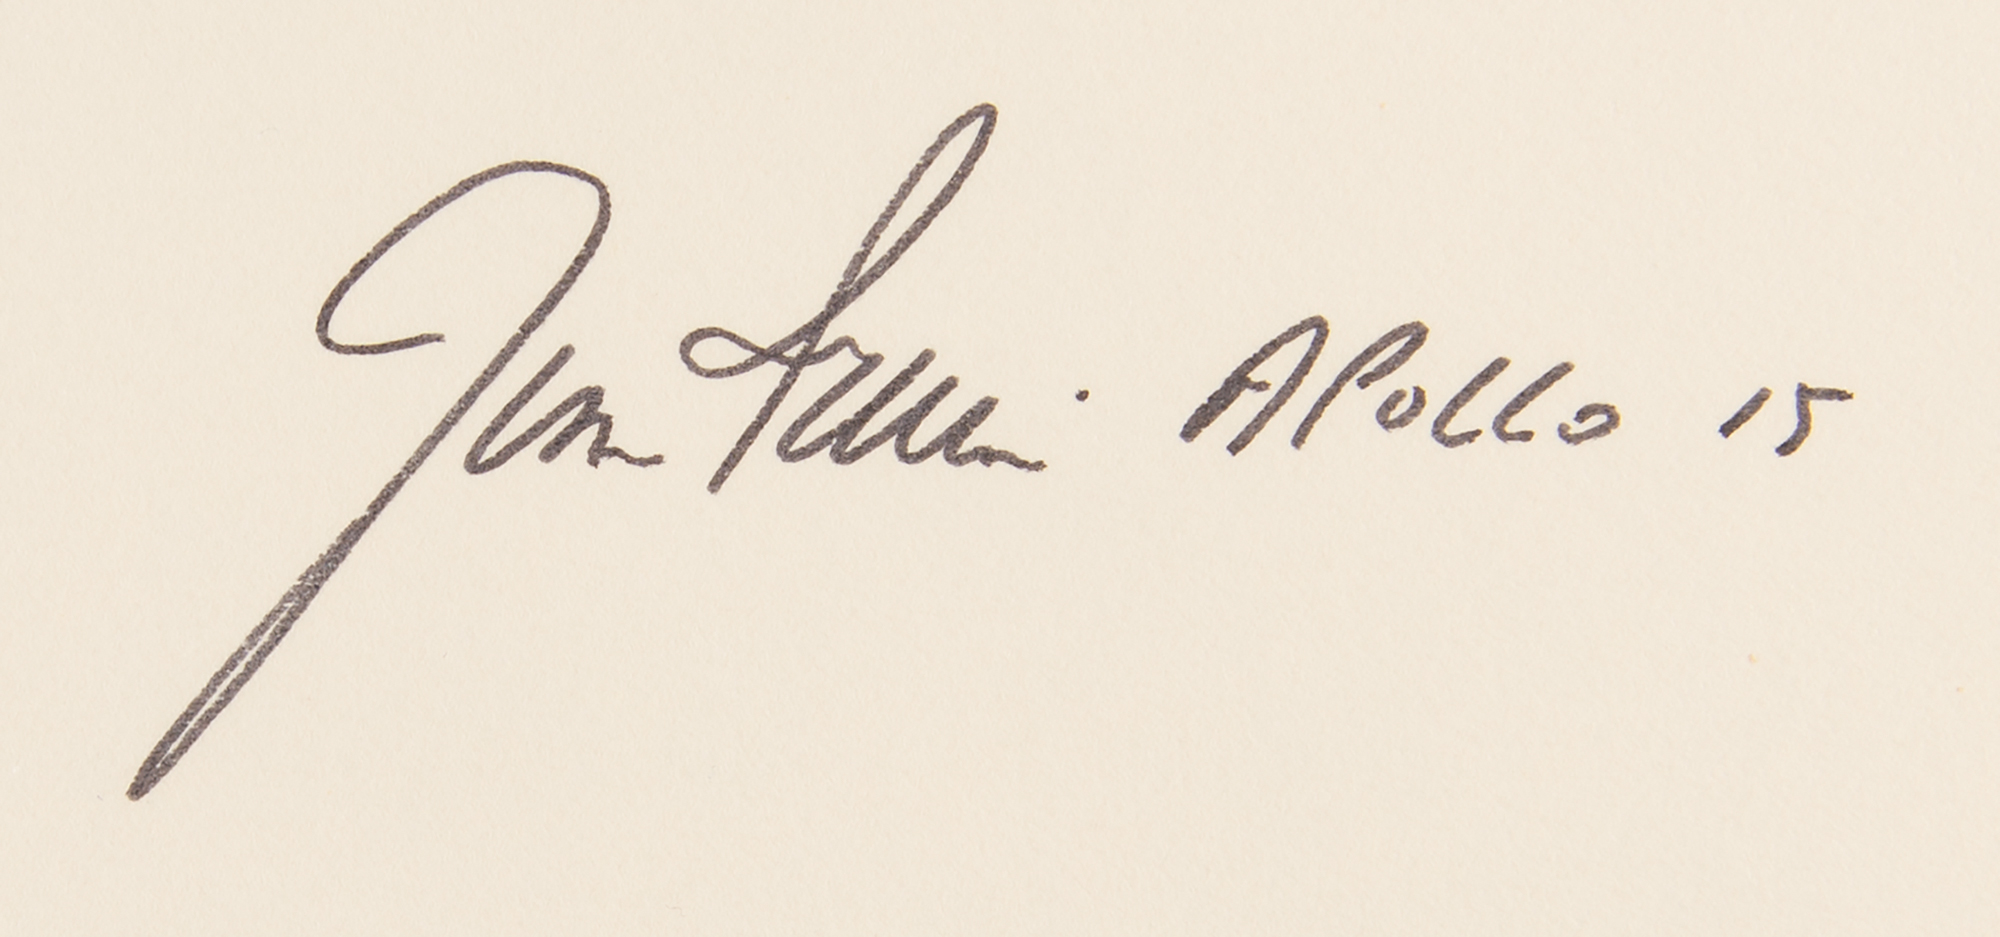 Jim Irwin Apollo 15